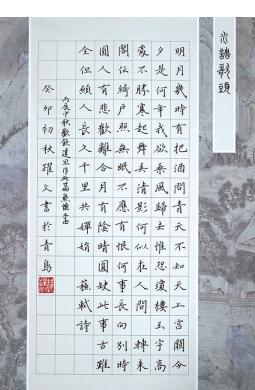 水調歌頭
明月幾時有把酒問青天不知天上宮闕今
夕是何年我欲乘風歸去惟恐瓊樓玉宇高
處不勝寒起舞弄清影何似在人間 轉朱
閣低綺戶照無眠不應有恨何事長向別時
圓人有悲歡離合月有陰晴圓缺此事古難
全但願人長久千里共嬋娟 蘇軾詩
丙辰中秋歡飲達旦作此篇兼懷子由
癸卯初秋躍久書於青島